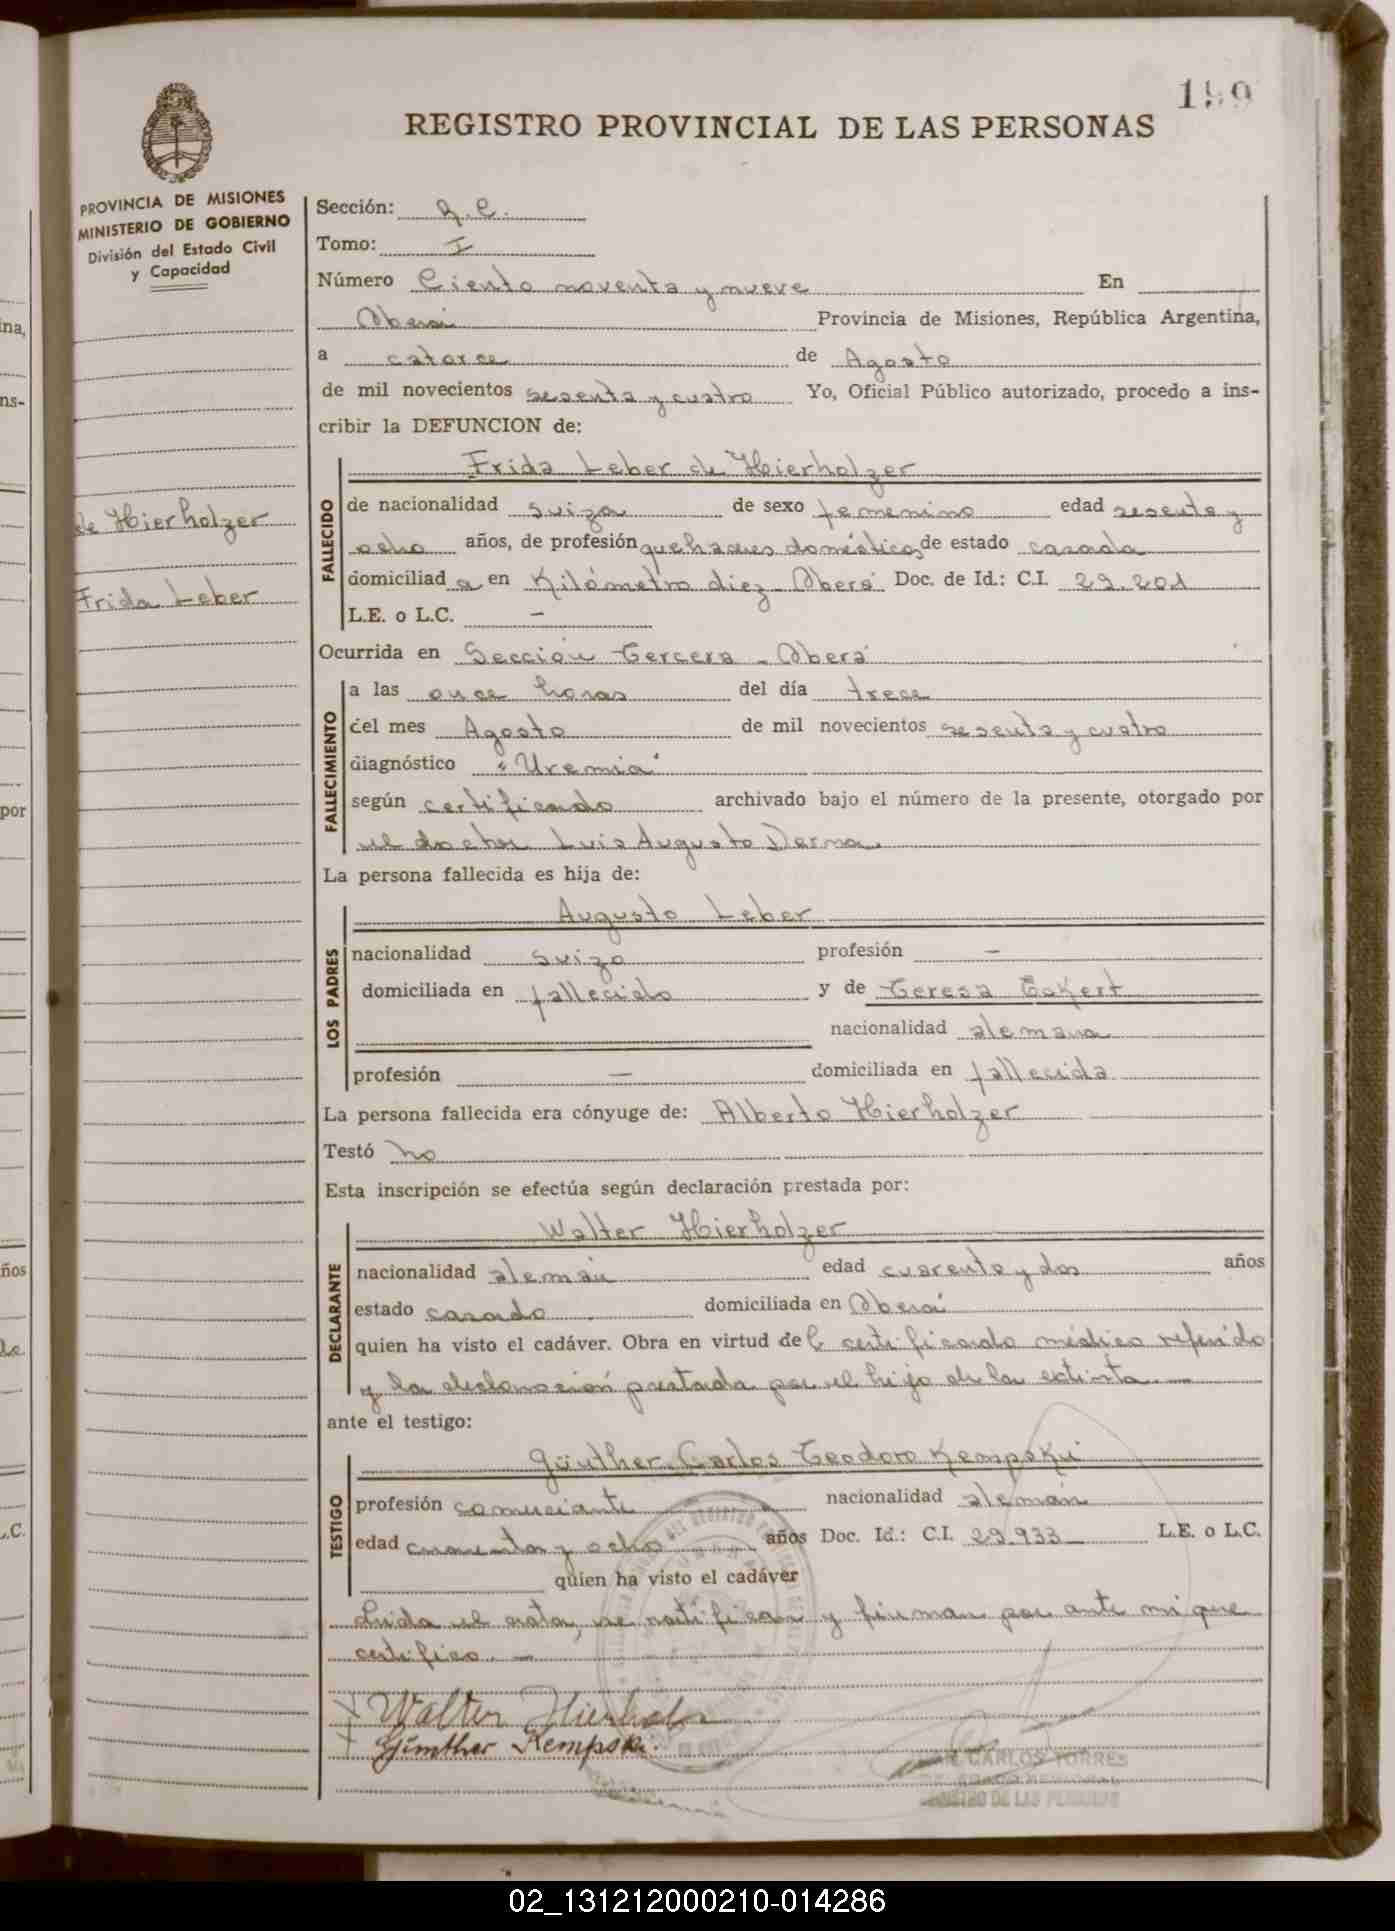 199
REGISTRO PROVINCIAL DE LAS PERSONAS
PROVINCIA DE MISIONES
MINISTERIO DE GOBIERNO
División del Estado Civil
y Capacidad
de Hierholzer
Frida Leber
Sección:
Tomo: I
Número Ciento noventa y nueve En
Oberá Provincia de Misiones, República Argentina,
a catorce de Agosto
de mil novecientos sesenta y cuatro Yo, Oficial Público autorizado, procedo a ins-
cribir la DEFUNCION de:
FALLECIDO
Frida Leber de Hierholzer
de nacionalidad suiza de sexo femenino edad sesenta y
ocho años, de profesión quehaceres domésticos de estado casada
domiciliad a en Kilómetro diez - Oberá Doc. de Id.: C.I. 29.201
L.E. o L.C. -
Ocurrida en Sección Tercera - Oberá
FALLECIMIENTO
a las once horas del día trece
del mes Agosto de mil novecientos sesenta y cuatro
diagnóstico "Uremia"
según certificado archivado bajo el número de la presente, otorgado por
el doctor Luis Augusto Derna.
La persona fallecida es hija de:
LOS PADRES
Augusto Leber
nacionalidad suizo profesión -
domiciliada en fallecido y de Teresa Eckert
nacionalidad alemana
profesión - domiciliada en fallecida
La persona fallecida era cónyuge de: Alberto Hierholzer
Testó no
Esta inscripción se efectúa según declaración prestada por:
DECLARANTE
Walter Hierholzer
nacionalidad alemán edad cuarenta y dos años
estado casado domiciliada en Oberá
quien ha visto el cadáver. Obra en virtud del certificado médico referido
y la declaración prestada por el hijo de la extinta. -
ante el testigo:
TESTIGO
Günther Carlos Teodoro Kempski
profesión comerciante nacionalidad alemán
edad cuarenta y ocho años Doc. Id.: C.I. 29.933 L.E. o L.C.
quien ha visto el cadáver
Leida el acta, se notifican y firman por ante mi que
certifico. -
Walter Hierholz
Günther Kempski.
CARLOS TORRES
REGISTRO DE LAS PERSONAS
ina,
ns-
por
ños
L.C.
02_131212000210-014286